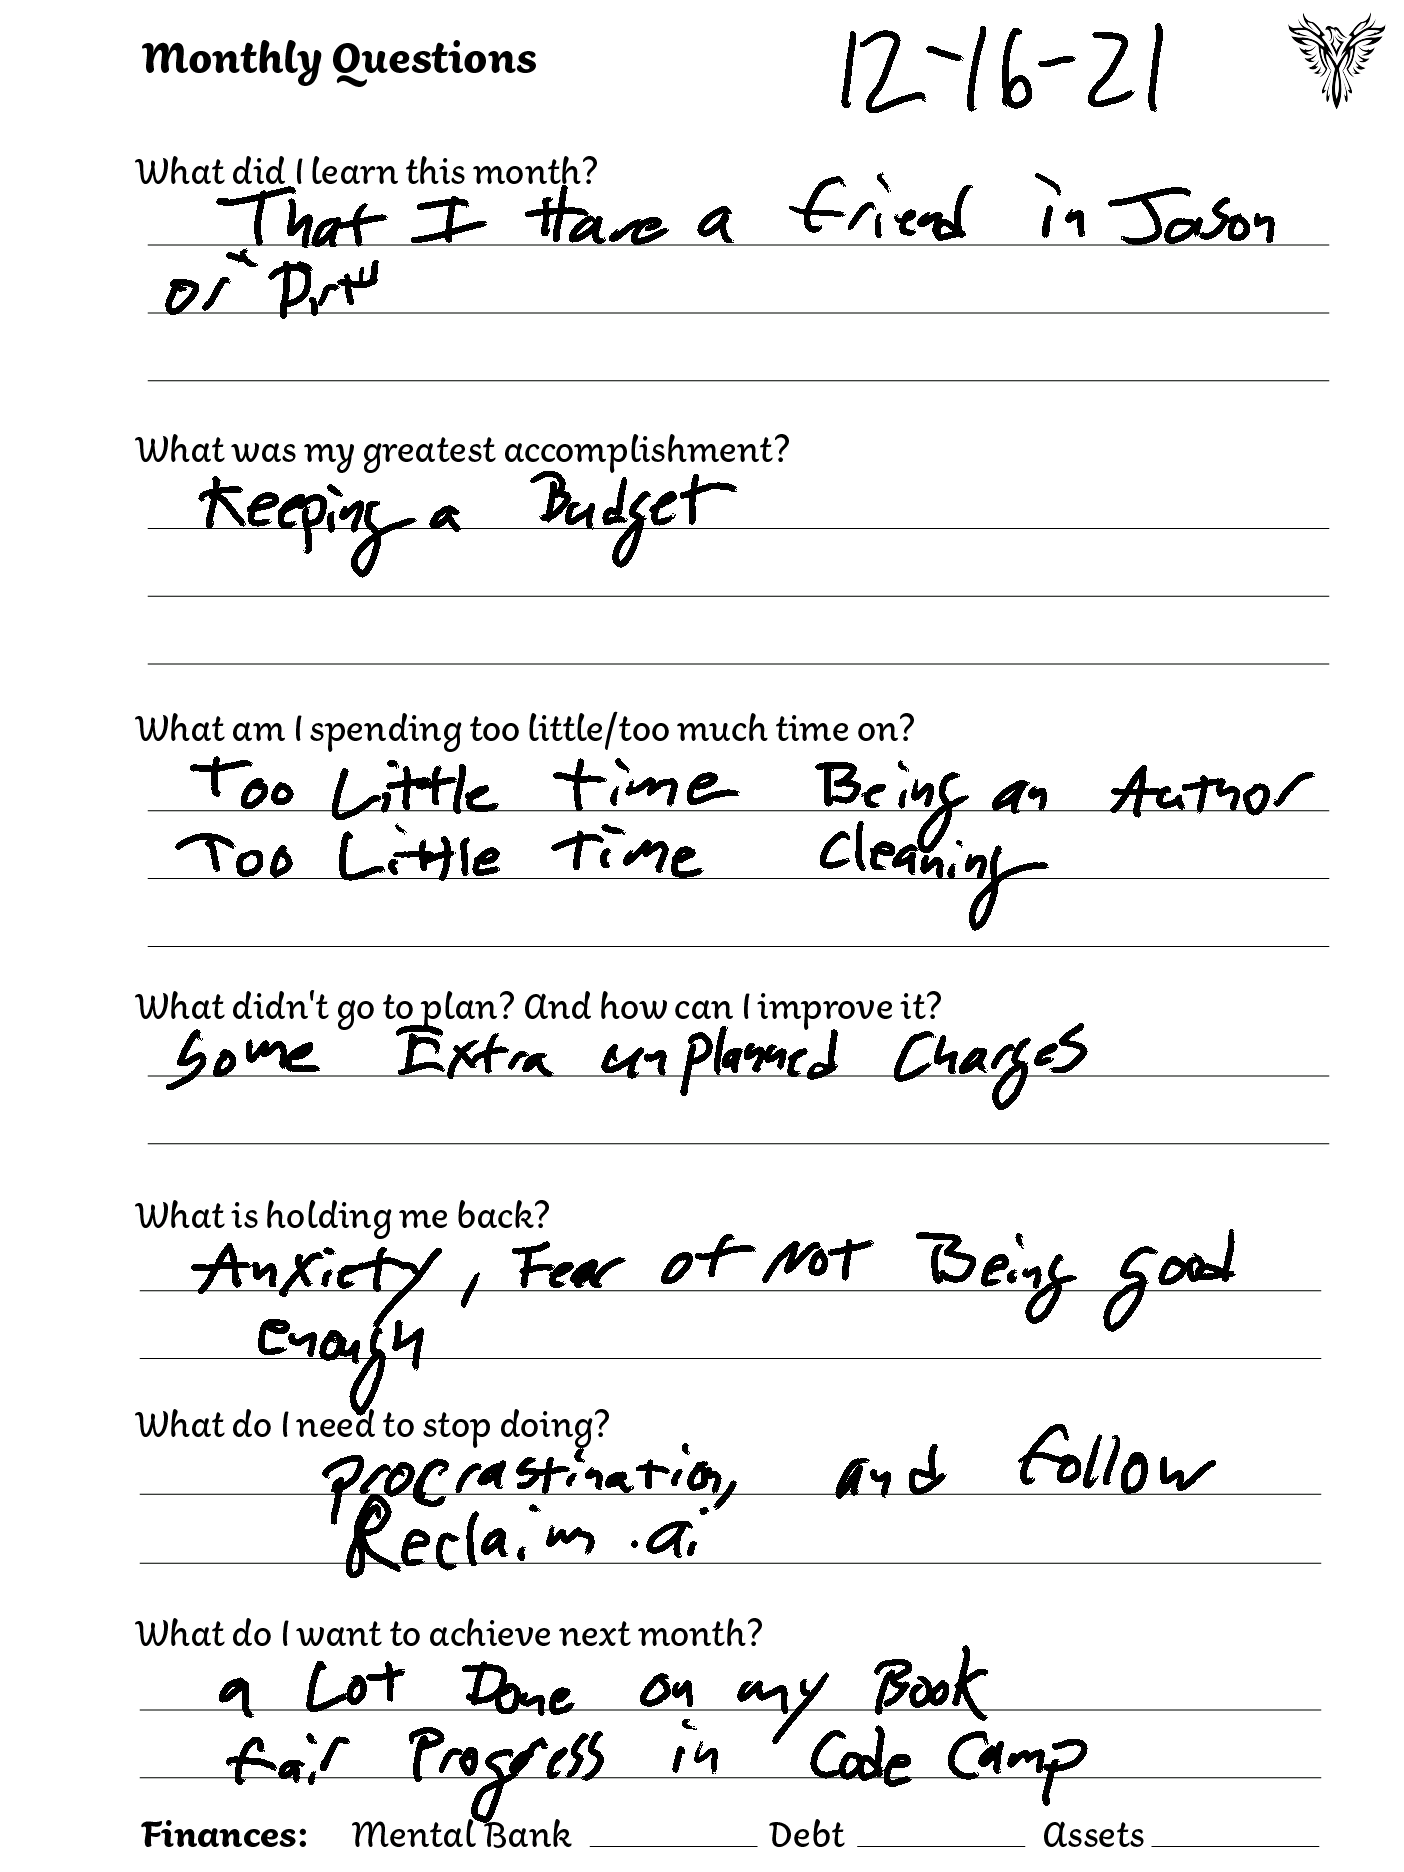 Monthly Questions 12-16-21
What did I learn this month?
That I Have a friend in Jason
or
What was my greatest accomplishment?
Keeping a Budget
What am I spending too little/too much time on?
Too Little time Being an Author
Too Little Time Cleaning
What didn't go to plan? And how can I improve it?
Some Extra unplanned Charges
What is holding me back?
Anxiety, Fear of Not Being good
enough
What do I need to stop doing?
procrastination, and follow
Reclaim.ai
What do I want to achieve next month?
a Lot Done on my Book
fair Progress in Code Camp
Finances: Mental Bank Debt Assets